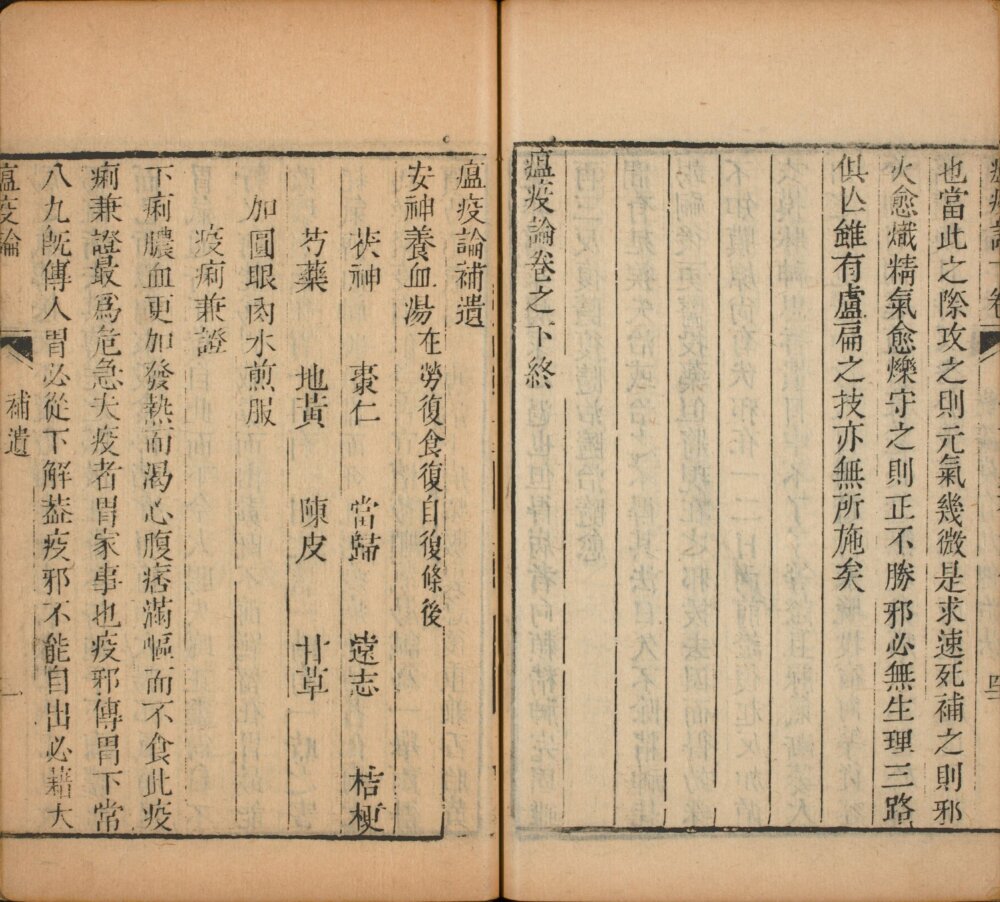 也當此之際攻之則元氣幾微是求速死補之則邪
火愈熾精氣愈爍守之則正不勝邪必無生理三路
俱亾雖有盧扁之技亦無所施矣
瘟疫論卷之下終
瘟疫論補遺
安神養血湯在勞復食復自復條後
茯神 棗仁 當歸 遠志 桔梗
芍藥 地黃 陳皮 甘草
加圓眼肉水煎服
疫痢兼證
下痢膿血更加發熱而渴心腹痞滿嘔而不食此疫
痢兼證最爲危急夫疫者胃家事也疫邪傳胃下常
八九旣傳入胃必從下解葢疫邪不能自出必藉大
瘟疫論 補遺 一